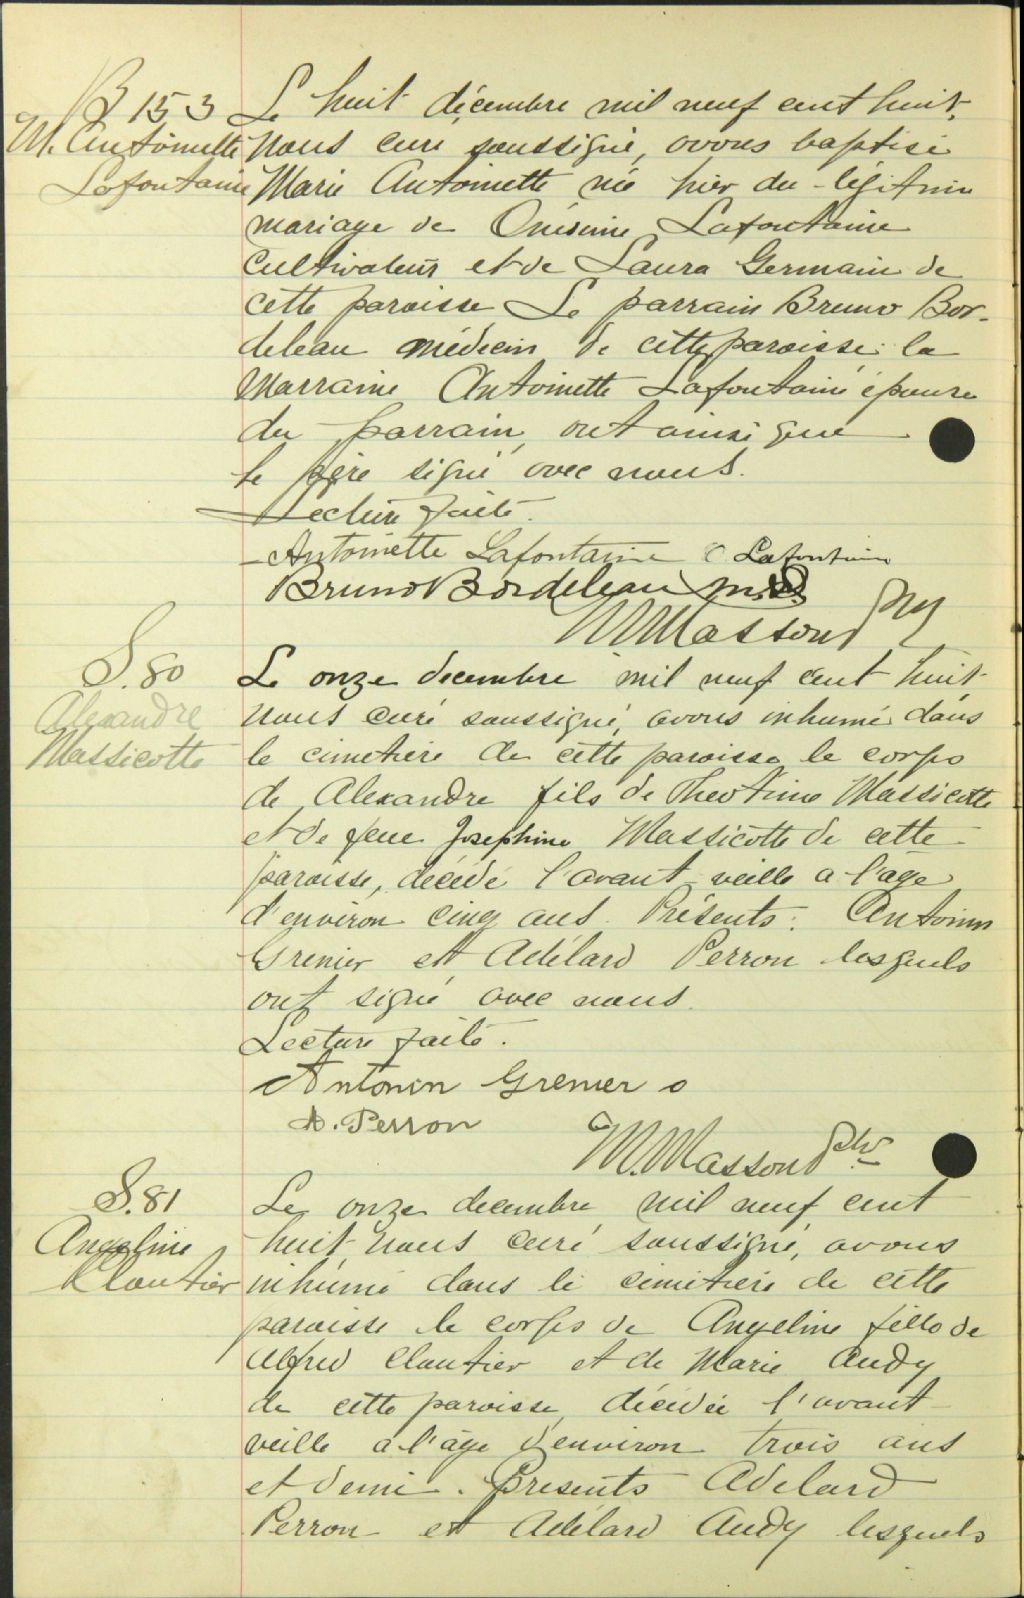 B 153
M. Antoinette
Lafontaine
Le huit décembre mil neuf cent huit,
nous curé soussigné, avons baptisé
Marie Antoinette née hier du légitime
mariage de Onésime Lafontaine
cultivateur et de Laura Germain de
cette paroisse Le parrain Bruno Bor-
deleau médecin de cette paroisse la
marraine Antoinette Lafontaine épouse
du parrain, ont ainsi que
le père signé avec nous.
Lecture faite.
Antoinette Lafontaine O Lafontaine
Bruno Bordeleau M.D.
M Masson Ptr
S. 80
Alexandre
Massicotte
Le onze decembre mil neuf cent huit
nous curé soussigné, avons inhumé dans
le cimetière de cette paroisse le corps
de Alexandre fils de Theotime Massicotte
et de feue Josephine Massicotte de cette
paroisse, décédé l'avant veille a l'âge
d'environ cinq ans. Présents: Antonin
Grenier et Adélard Perron lesquels
ont signé avec nous.
Lecture faite.
Antonin Grenier
A. Perron
M. Masson Ptr
S. 81
Angeline
Cloutier
Le onze decembre mil neuf cent
huit nous curé soussigné, avons
inhumé dans le cimetière de cette
paroisse le corps de Angeline fille de
Alfred Cloutier et de Marie Audy
de cette paroisse, décédée l'avant
veille a l'âge d'environ trois ans
et demi. Presents Adelard
Perron et Adélard Audy lesquels